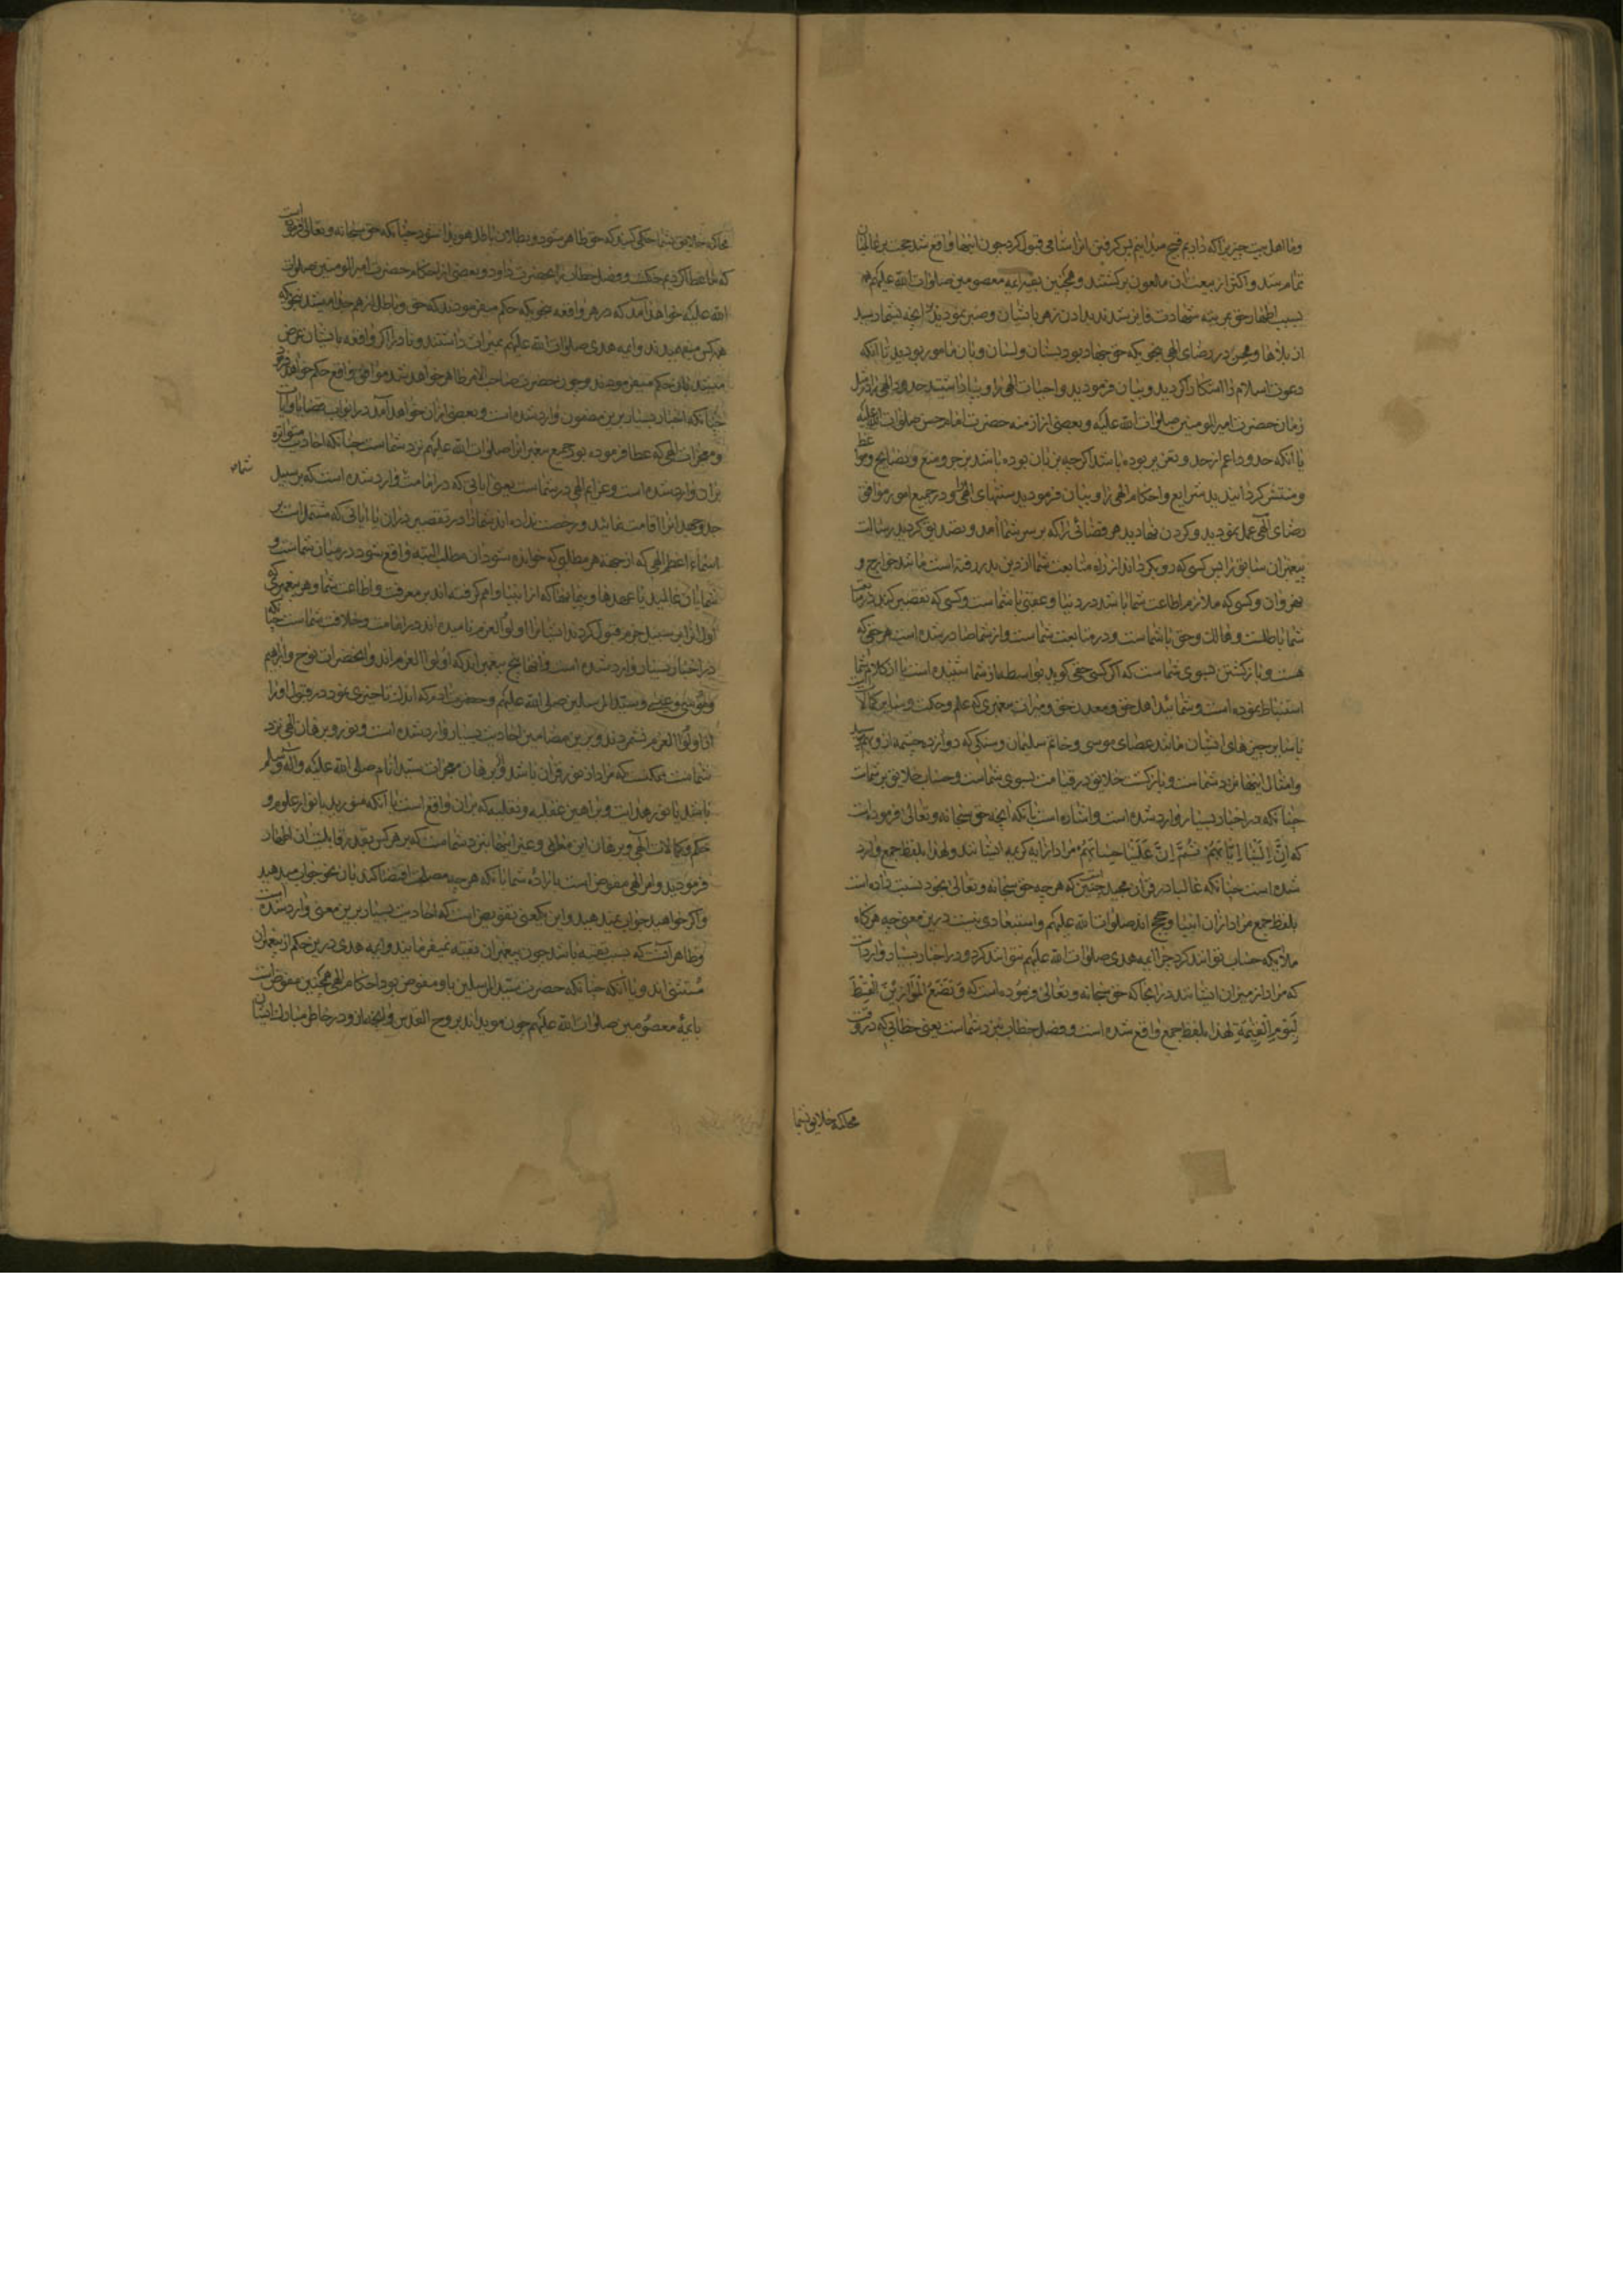 و ما اهل بیت چیزیرا که دادیم قبیح میدانیم پس گرفتن انرا شامی قبول کرد چون اینها واقع شد حجت بر عالمیان
تمام شد و اکثر از بیعت ان ملعون برگشتند و همچنین بقیه ائمه معصومین صلوات الله علیهم
بسبب اظهار حق بمرتبه شهادت فایز شدند بدادن زهر بایشان و صبر نمودید بر انچه بشما رسید
از بلاها و محن در رضای الهی بنحوی که حق جهاد بود بسنان و لسان و بان مامور بودید تا آنکه
دعوت اسلام را اشکارا کردید و بیان فرمودید واجبات الهی را و بپا داشتید حدود الهی را در مثل
زمان حضرت امیر المومنین صلوات الله علیه و بعضی از ازمنه حضرت امام حسن صلوات الله علیه
یا آنکه حدود اعم از حد و تعزیر بوده باشد اگر چه بزبان بوده باشد بزجر و منع و نصایح و مواعظ
و منتشر گردانیدید شرایع و احکام الهی را و بیان فرمودید سنتهای الهی را و در جمیع امور موافق
رضای الهی عمل نمودید و گردن نهادید هر قضائی را که بر سر شما آمد و تصدیق کردید رسالت
پیغمبران سابق را پس کسی که رو بگرداند از راه متابعت شما از دین بدر رفته است مانند خوارج و
نهروان و کسی که ملازم اطاعت شما باشد در دنیا و عقبی با شماست و کسی که تقصیر کند در متابعت
شما باطلست و هالک و حق با شماست و در متابعت شماست و از شما صادر شده است هر حقی که
هست و بازگشتن بسوی شماست که اگر کسی حقی گوید بواسطه از شما شنیده است یا از کلام شما
استنباط نموده است و شمائید اهل حق و معدن حق و میراث پیغمبری که علم و حکمت و سایر کمالات است
با سایر چیزهای ایشان مانند عصای موسی و خاتم سلیمان و سنگی که دوازده چشمه از و بهم رسید
و امثال اینها نزد شماست و بازگشت خلایق در قیامت بسوی شماست و حساب خلایق بر شماست
چنانکه در اخبار بسیار وارد شده است و اشاره است بآنکه آنچه حق سبحانه و تعالی فرموده است
که اِنَّ اِلَیْنَا اِیَابَهُمْ ثُمَّ اِنَّ عَلَیْنَا حِسَابَهُمْ مراد از آیه کریمه ایشانند و لهذا بلفظ جمع وارد
شده است چنانکه غالبا در قرآن مجید چنین است که هر چه حق سبحانه و تعالی بخود نسبت داده است
بلفظ جمع مراد از آن انبیا و حجج اند صلوات الله علیهم و استبعادی نیست درین معنی چه هرگاه
ملائکه حساب توانند کرد چرا ائمه هدی صلوات الله علیهم نتوانند کرد و در اخبار بسیار وارد است
که مراد از میزان ایشانند در انجا که حق سبحانه و تعالی فرموده است که وَ نَضَعُ الْمَوَازِیْنَ الْقِسْطَ
لِیَوْمِ الْقِیٰمَةِ لهذا بلفظ جمع واقع شده است و فصل خطاب نزد شماست یعنی خطابی که در وقت
محاکمه خلایق بشما
محاکمه خلایق بشما حکمی کنید که حق ظاهر شود و بطلان باطل هویدا شود چنانکه حق سبحانه و تعالی فرموده است
که ما عطا کردیم حکمت و فصل خطاب را بحضرت داود و بعضی از احکام حضرت امیر المومنین صلوات
الله علیه خواهد آمد که در هر واقعه بنحویکه حکم میفرمودند که حق و باطل از هم جدا میشد بنحوی که
همه کس میفهمیدند و ائمه هدی صلوات الله علیهم میراث داشتند و نادرا اگر واقعه بایشان عرض
میشد بان حکم میفرمودند و چون حضرت صاحب الامر ظاهر خواهد شد موافق واقع حکم خواهد فرمود
چنانکه اخبار بسیار برین مضمون وارد شده است و بعضی از آن خواهد آمد در ابواب قضایا و آیات
و معجزات الهی که عطا فرموده بود بجمیع پیغمبران صلوات الله علیهم نزد شماست چنانکه احادیث متواتره
بران وارد شده است و عزایم الهی در شماست یعنی آیاتی که در امامت شما وارد شده است که بر سبیل
جد و جهد انرا اقامت نمائید و رخصت نداده اند شما را در تقصیر دران یا آیاتی که مشتمل است بر
اسماء اعظم الهی که از جهة هر مطلبی که خوانده شود ان مطلب البته واقع شود در میان شماست و
شما بان عالمید یا عهدها و پیمانها که از انبیا و امم گرفته اند بر معرفت و اطاعت شما و هر پیغمبری که
اول از این سبیل جزم قبول کردند ایشانرا اولو العزم نامیده اند در امامت و خلافت شماست چنانکه
در اخبار بسیار وارد شده است و انها پنج پیغمبراند که اولوا العزم اند و آنحضرات نوح و ابراهیم
و موسی و عیسی و سید المرسلین صلی الله علیهم و حضرت ادم که اندک تاخیری نمود در قبول او را
از اولوا العزم نشمردند و برین مضامین احادیث بسیار وارد شده است و نور و برهان الهی نزد
شماست ممکنست که مراد از نور قرآن باشد و برهان معجزات سید انام صلی الله علیه و آله و سلم
باشد یا نور هدایت و براهین عقلیه و نقلیه که بران واقع است یا آنکه منورید بانوار علوم و
حکم و کمالات الهی و برهان این معانی و غیر اینها نیز نزد شماست که بر هر کس بقدر قابلیت ان اظهار
فرمودید و امر الهی مفوض است باراده شما یا آنکه هر چه مصلحت اقتضا کند بان نحو جواب میدهید
و اگر خواهید جواب نمیدهید و این یکمعنی تفویض است که احادیث بسیار برین معنی وارد شده است
و ظاهر آنست که بسبب تقیه باشد چون پیغمبران تقیه نمیفرمایند و ائمه هدی درین حکم از پیغمبران
مستثنی اند و یا آنکه چنانکه حضرت سید المرسلین باو مفوض بود احکام الهی همچنین مفوض است
بائمهٔ معصومین صلوات الله علیهم چون مویداند بروح القدس و آنچه در خاطر مبارک ایشان